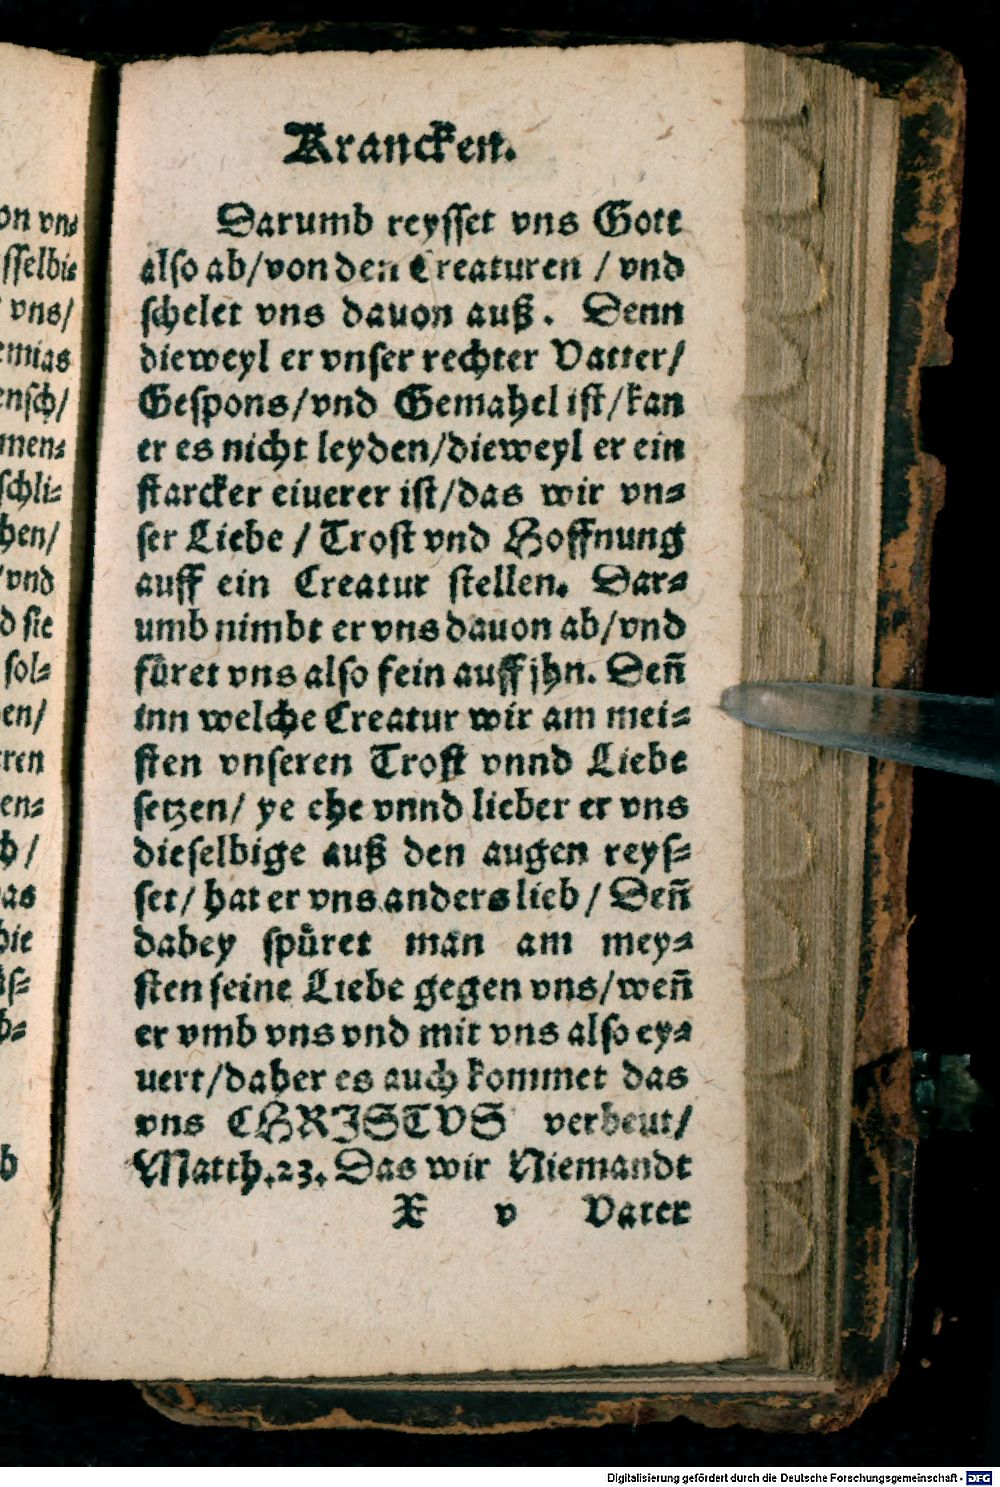 Krancken.
Darumb reysset vns Gott
also ab/von den Creaturen / vnd
schelet vns dauon auß. Denn
dieweyl er vnser rechter Vatter/
Gespons/vnd Gemahel ist/kan
er es nicht leyden/dieweyl er ein
starcker eiuerer ist/das wir vn⸗
ser Liebe / Trost vnd Hoffnung
auff ein Creatur stellen. Dar⸗
umb nimbt er vns dauon ab/vnd
fuͤret vns also fein auff jhn. Den̄
inn welche Creatur wir am mei⸗
sten vnseren Trost vnnd Liebe
setzen/ ye ehe vnnd lieber er vns
dieselbige auß den augen reys⸗
set/ hat er vns anders lieb / Den̄
dabey spuͤret man am mey⸗
sten seine Liebe gegen vns/wen̄
er vmb vns vnd mit vns also ey⸗
uert/daher es auch kommet das
vns CHRISTVS verbeut/
Matth.23. Das wir Niemandt
X v Vater
on vn⸗
sselbi⸗
vns/
emias
ensch/
men⸗
schli⸗
hen/
/vnd
d sie
sol⸗
en/
ren
en⸗
/
as
die
b⸗
b
Digitalisierung gefördert durch die Deutsche Forschungsgemeinschaft - DFG